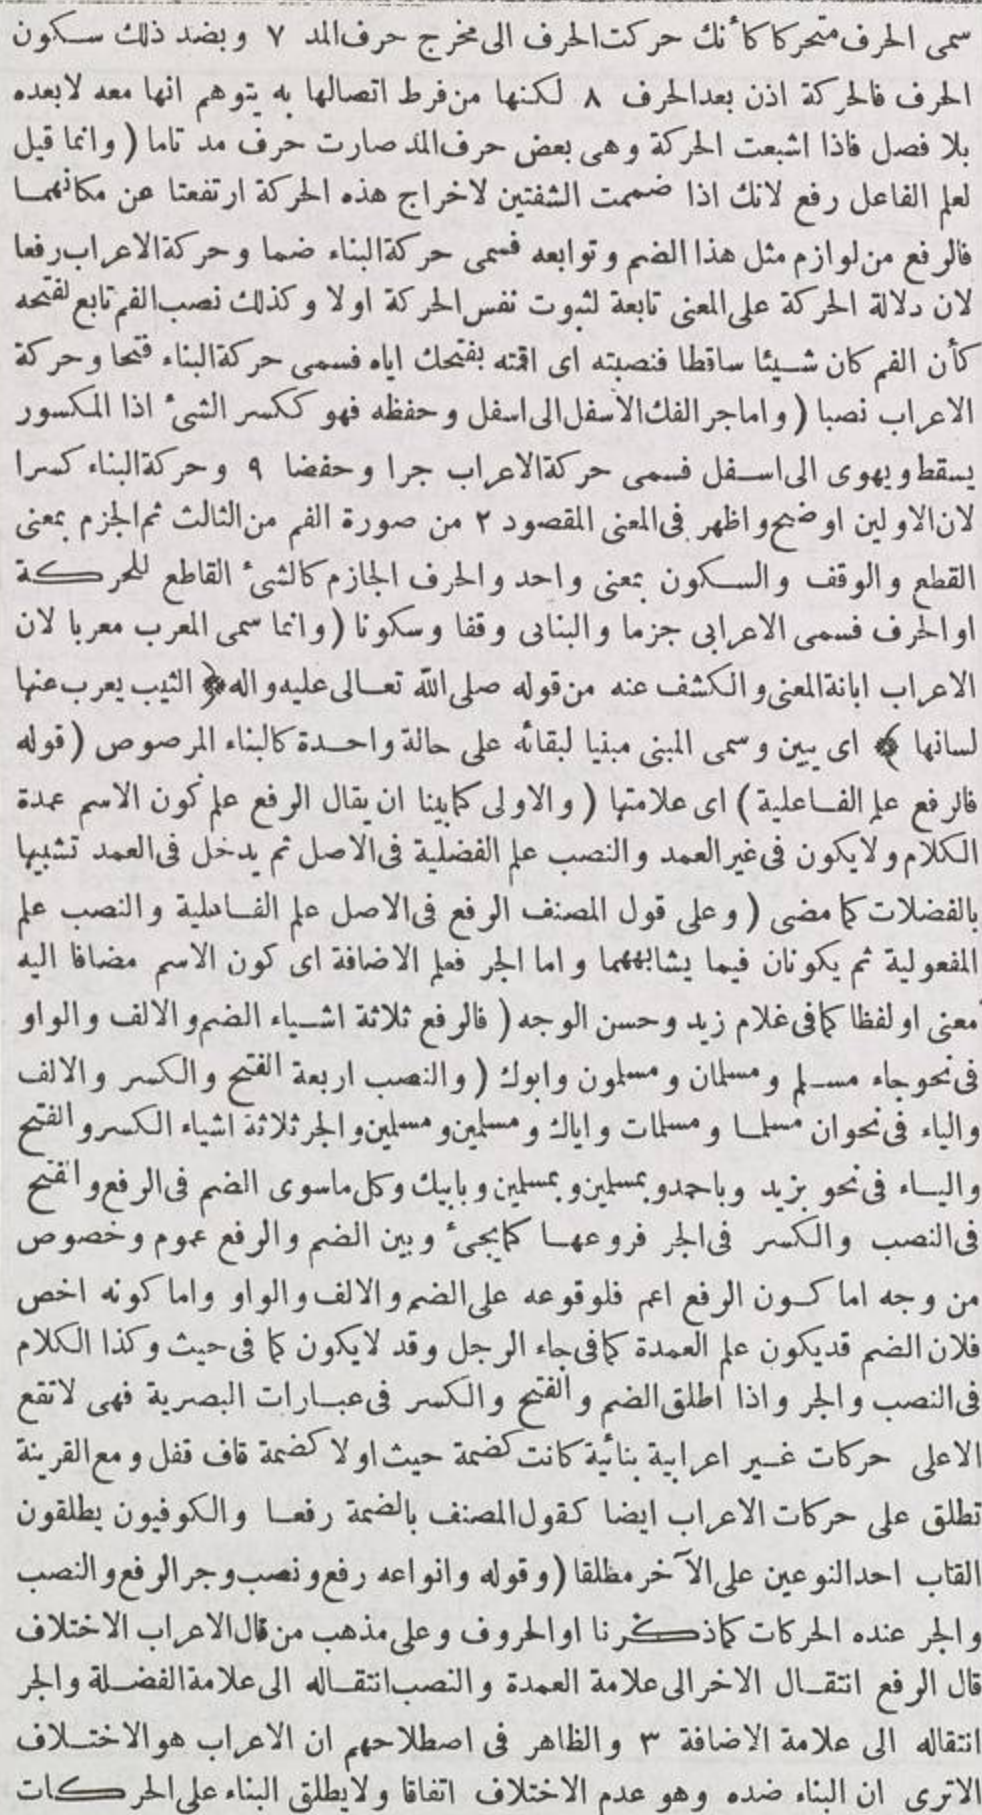 سمى الحرف متحركا كأنك حركت الحرف الى مخرج حرف المد ٧ وبضد ذلك سكون
الحرف فالحركة اذن بعد الحرف ٨ لكنها من فرط اتصالها به يتوهم انها معه لابعده
بلا فصل فاذا اشبعت الحركة وهى بعض حرف المد صارت حرف مد تاما ( وانما قيل
لعلم الفاعل رفع لانك اذا ضممت الشفتين لاخراج هذه الحركة ارتفعتا عن مكانهما
فالرفع من لوازم مثل هذا الضم وتوابعه فسمى حركة البناء ضما وحركة الاعراب رفعا
لان دلالة الحركة على المعنى تابعة لثبوت نفس الحركة اولا وكذلك نصب الفم تابع لفتحه
كأن الفم كان شيئا ساقطا فنصبته اى اقمته بفتحك اياه فسمى حركة البناء فتحا وحركة
الاعراب نصبا ( واما جر الفك الاسفل الى اسفل وحفظه فهو ككسر الشئ اذا المكسور
يسقط ويهوى الى اسفل فسمى حركة الاعراب جرا وحفضا ٩ وحركة البناء كسرا
لان الاولين اوضح واظهر فى المعنى المقصود ٢ من صورة الفم من الثالث ثم الجزم بمعنى
القطع والوقف والسكون بمعنى واحد والحرف الجازم كالشئ القاطع للحركة
او الحرف فسمى الاعرابى جزما والبنائى وقفا وسكونا ( وانما سمى المعرب معربا لان
الاعراب ابانة المعنى والكشف عنه من قوله صلى الله تعالى عليه واله ﴿ الثيب يعرب عنها
لسانها ﴾ اى يبين وسمى المبنى مبنيا لبقائه على حالة واحدة كالبناء المرصوص ( قوله
فالرفع علم الفاعلية ) اى علامتها ( والاولى كما بينا ان يقال الرفع علم كون الاسم عمدة
الكلام ولايكون فى غير العمد والنصب علم الفضلية فى الاصل ثم يدخل فى العمد تشبيها
بالفضلات كما مضى ( وعلى قول المصنف الرفع فى الاصل علم الفاعلية والنصب علم
المفعولية ثم يكونان فيما يشابههما واما الجر فعلم الاضافة اى كون الاسم مضافا اليه
معنى او لفظا كما فى غلام زيد وحسن الوجه ( فالرفع ثلاثة اشياء الضم والالف والواو
فى نحو جاء مسلم ومسلمان ومسلمون وابوك ( والنصب اربعة الفتح والكسر والالف
والياء فى نحو ان مسلما ومسلمات واياك ومسلمين ومسلمين والجر ثلاثة اشياء الكسر والفتح
والياء فى نحو بزيد وباحمد وبمسلمين وبمسلمين وبابيك وكل ماسوى الضم فى الرفع والفتح
فى النصب والكسر فى الجر فروعها كما يجئ وبين الضم والرفع عموم وخصوص
من وجه اما كون الرفع اعم فلوقوعه على الضم والالف والواو واما كونه اخص
فلان الضم قديكون علم العمدة كما فى جاء الرجل وقد لايكون كما فى حيث وكذا الكلام
فى النصب والجر واذا اطلق الضم والفتح والكسر فى عبارات البصرية فهى لاتقع
الاعلى حركات غير اعرابية بنائية كانت كضمة حيث اولا كضمة قاف قفل ومع القرينة
تطلق على حركات الاعراب ايضا كقول المصنف بالضمة رفعا والكوفيون يطلقون
القاب احد النوعين على الآخر مظلقا ( وقوله وانواعه رفع ونصب وجر الرفع والنصب
والجر عنده الحركات كما ذكرنا او الحروف وعلى مذهب من قال الاعراب الاختلاف
قال الرفع انتقال الاخر الى علامة العمدة والنصب انتقاله الى علامة الفضلة والجر
انتقاله الى علامة الاضافة ٣ والظاهر فى اصطلاحهم ان الاعراب هو الاختلاف
الاترى ان البناء ضده وهو عدم الاختلاف اتفاقا ولايطلق البناء على الحركات